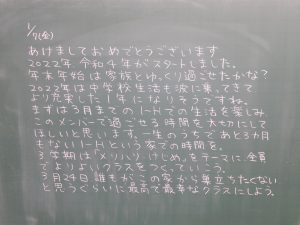 1/7(金)
あけましておめでとうございます
2022年、令和4年がスタートしました。
年末年始は家族とゆっくり過ごせたかな？
2022年は中学校生活も波に乗ってきて
より充実した1年になりそうですね。
まずは3月までの1-Hでの生活を楽しみ
このメンバーで過ごせる時間を大切にして
ほしいと思います。一生のうちであと3カ月
もない1-Hという家での時間を。
3学期は「メリハリ・けじめ」をテーマに、全員
でよりよいクラスをつくっていこう。
3月24日 誰もがこの家から巣立ちたくない
と思うくらいに最高で最幸なクラスにしよう。